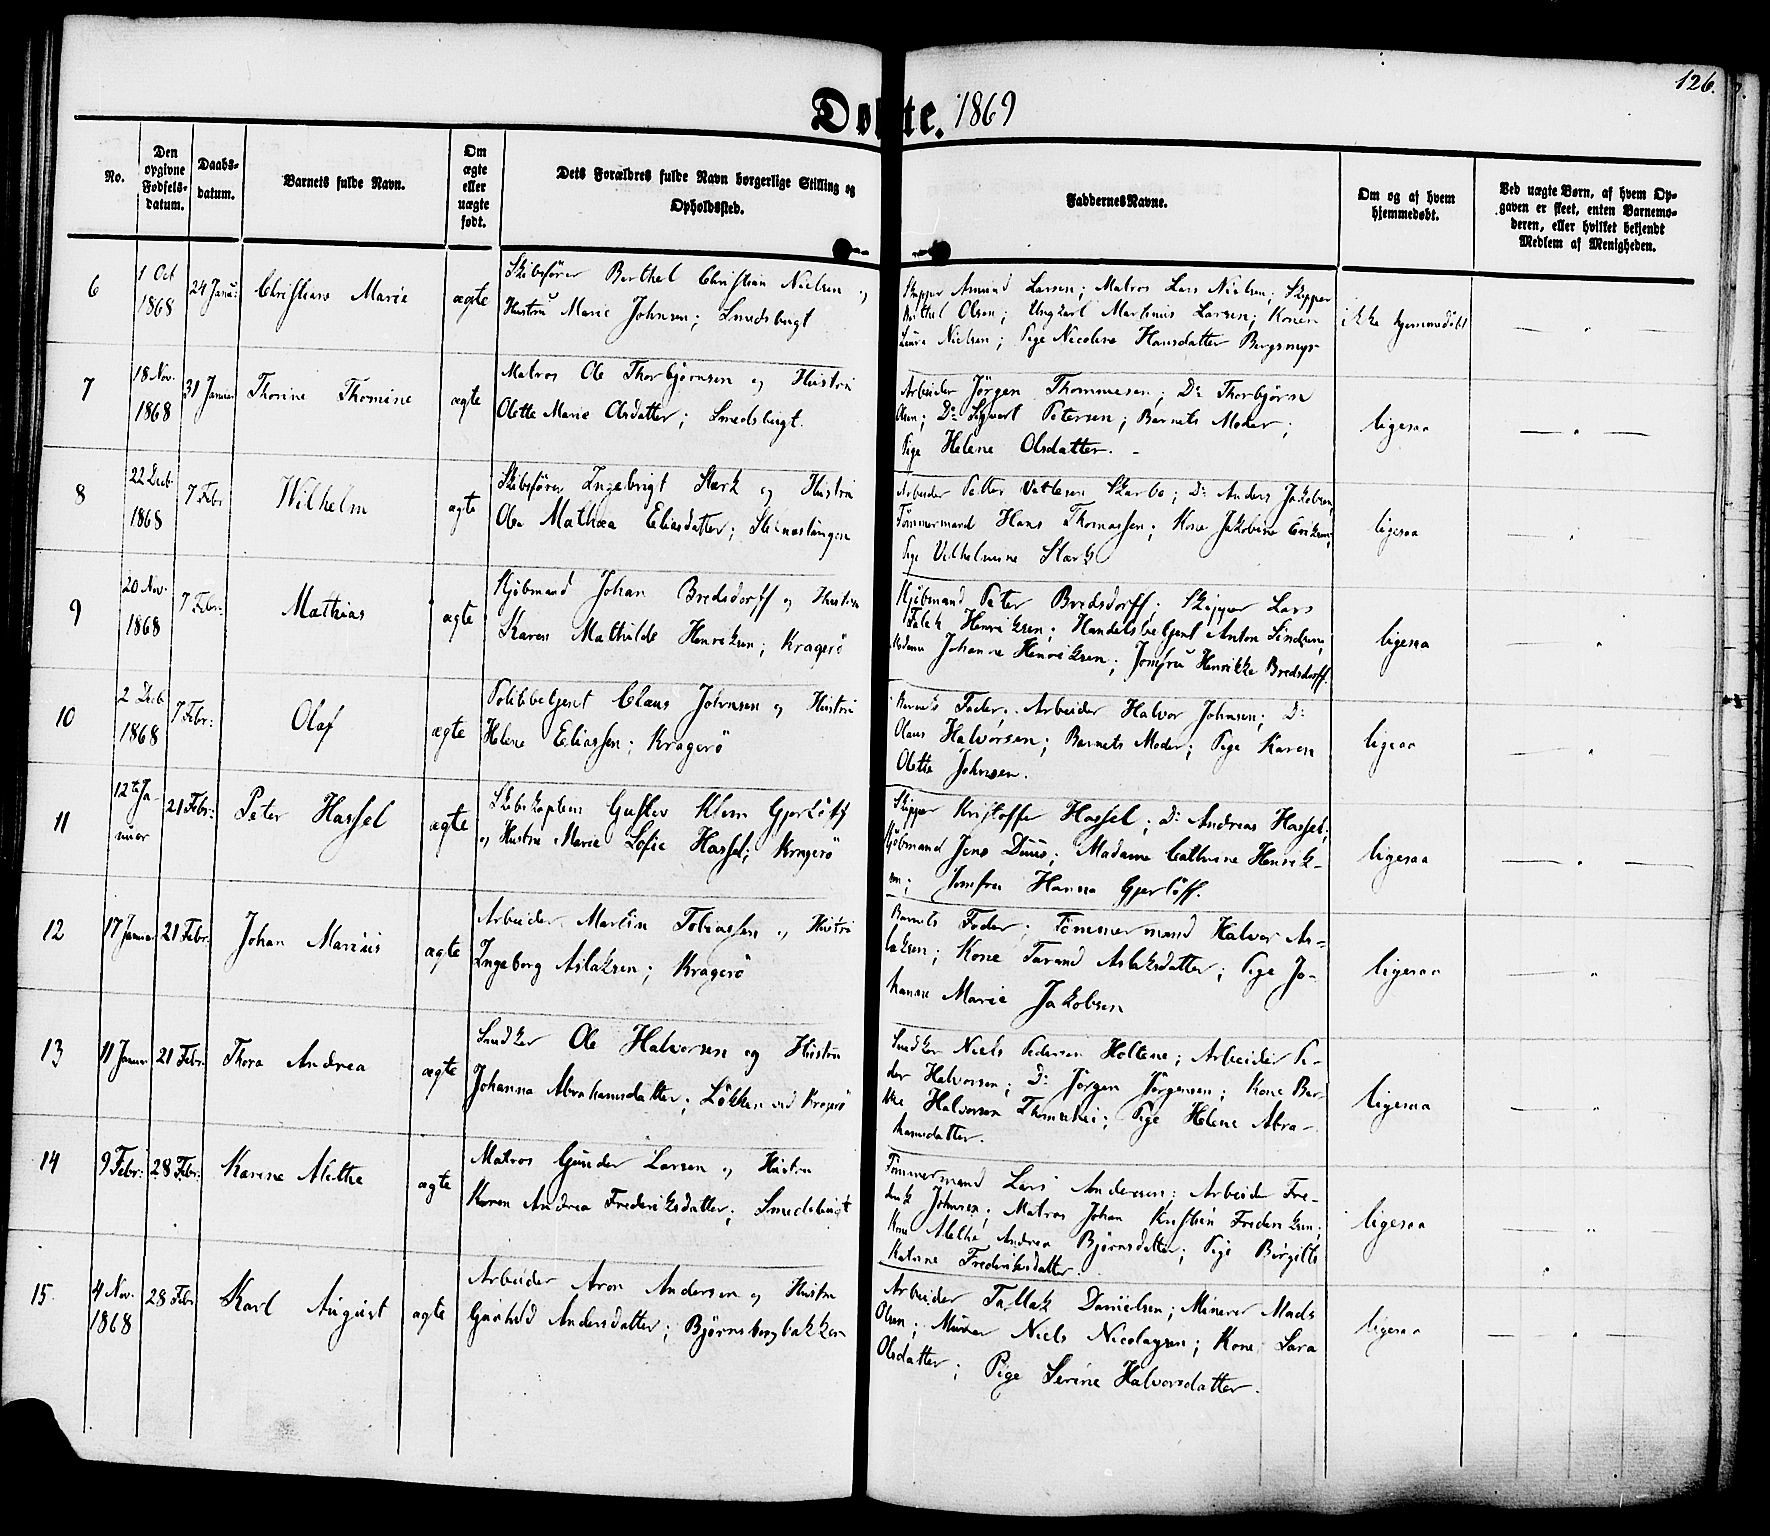 126.
Døbte. 1869
No.
Den opgivne Fødsels-datum.
Daabs-datum.
Barnets fulde Navn.
Om ægte eller uægte født.
Dets Forældres fulde Navn borgerlige Stilling og Opholdssted.
Faddernes Navne.
Om og af hvem hjemmedøbt.
Ved uægte Børn, af hvem Opgaven er skeet, enten Barnemoderen, eller hvilket bekjendt Medlem af Menigheden.
6
1 Oct 1868
24 Januar
Christiane Marie
ægte
Skibsfører Berthel Christian Nielsen og
Hustru Marie Johnsen; Smedsbugt
Skipper Amund Larsen; Matros Lars Nielsen; Skipper
Berthel Olsen; Ungkarl Martinius Larsen; Konen
Laura Nielsen; Pige Nicoline Hansdatter Bergsmyr
ikke hjemmedøbt
7
18 Nov. 1868
31 Januar
Thorine Thomine
ægte
Matros Ole Thorbjørnsen og Hustru
Olette Marie Olsdatter; Smedsbugt.
Arbeider Jörgen Thommesen; Do Thorbjørn
Olsen; Do Sigvart Petersen; Barnets Moder;
Pige Helene Olsdatter. -
ligesaa
8
22 Decb 1868
7 Febr
Wilhelm
ægte
Skibsfører Ingebrigt Stærk og Hustru
Olea Mathea Eliasdatter; Stilnestangen
Arbeider Petter Vetlesen Skarbo; Do Anders Jakobsen
Tömmermand Hans Thomassen; Kone Jakobine Eriksen;
Pige Vilhelmine Stærk
ligesaa
9
20 Nov. 1868
7 Febr:
Mathias
ægte
Kjöbmand Johan Bredsdorff og Hustru
Karen Mathilde Henriksen; Kragerö
Kjöbmand Peter Bredsdorff; Skipper Lars
Falck Henriksen; Handelsbetjent Anton Lindsen;
Madame Johanne Henriksen; Jomfru Henrikke Bredsdorff.
ligesaa
10
2 Decb 1868
7 Febr:
Olaf
ægte
Politibetjent Claus Johnsen og Hustru
Helene Eliassen; Kragerö
Barnets Fader; Arbeider Halvor Johnsen; Do
Olaus Halvorsen; Barnets Moder; Pige Karen
Olette Johnsen.
ligesaa
11
12te Januar
21 Febr:
Peter Hassel
ægte
Skibskaptein Gustav Klem Gjerlöff
og Hustru Marie Sofie Hassel; Kragerö
Skipper Kristoffer Hassel; Do Andreas Hassel;
Kjöbmand Jens Duus; Madame Cathrine Henrik-
sen; Jomfru Hanna Gjerlöff.
ligesaa
12
17 Januar
21 Febr.
Johan Marius
ægte
Arbeider Martin Tobiassen og Hustru
Ingeborg Aslaksen; Kragerö
Barnets Fader; Tömmermand Halvor As-
laksen; Kone Tarand Aslaksdatter; Pige Jo-
hanne Marie Jakobsen
ligesaa
13
11 Januar
21 Febr:
Thora Andrea
ægte
Snedker Ole Halvorsen og Hustru
Johanna Abrahamsdatter; Lökken ved Kragerö
Snedker Niels Pedersen Holtene; Arbeider Pe-
der Halvorsen; Do Jörgen Jörgensen; Kone Ber-
the Halvorsen; Pige Helene Abra-
hamsdatter.
ligesaa
14
9 Febr:
28 Febr:
Karine Alethe
ægte
Matros Gunder Larsen og Hustru
Karen Andrea Frederiksdatter; Smedsbugt
Tömmermand Lars Andersen; Arbeider Fre-
derik Johnsen; Matros Johan Kristian Frederiksen;
Kone Alethe Andrea Bjørnsdatter; Pige Birgitte
Katrine Frederiksdatter.
ligesaa
15.
4 Nov. 1868
28 Febr
Karl August
ægte
Arbeider Aron Andersen og Hustru
Gunhild Andersdatter; Bjørnsborgbakken
Arbeider Tallak Danielsen; Minerer Mads
Olsen; Murer Niels Nicolaysen; Kone Sara
Olsdatter; Pige Serine Halvorsdatter.
ligesaa